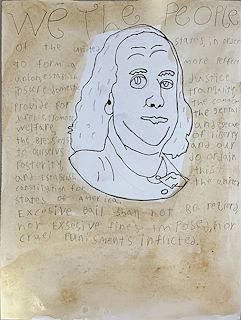 We the People
of the united states, in order
to form a more perfect
union, establish justice
insure domestic tranquility
provide for the common
the general
welfare and secure
the blessings of liberty
to ourselves and our
posterity do ordain
and establish this
constitution for the united
states of America.
Excesive bail shall not be required
nor exsesive fines imposed, nor
cruel punisments inflicted.